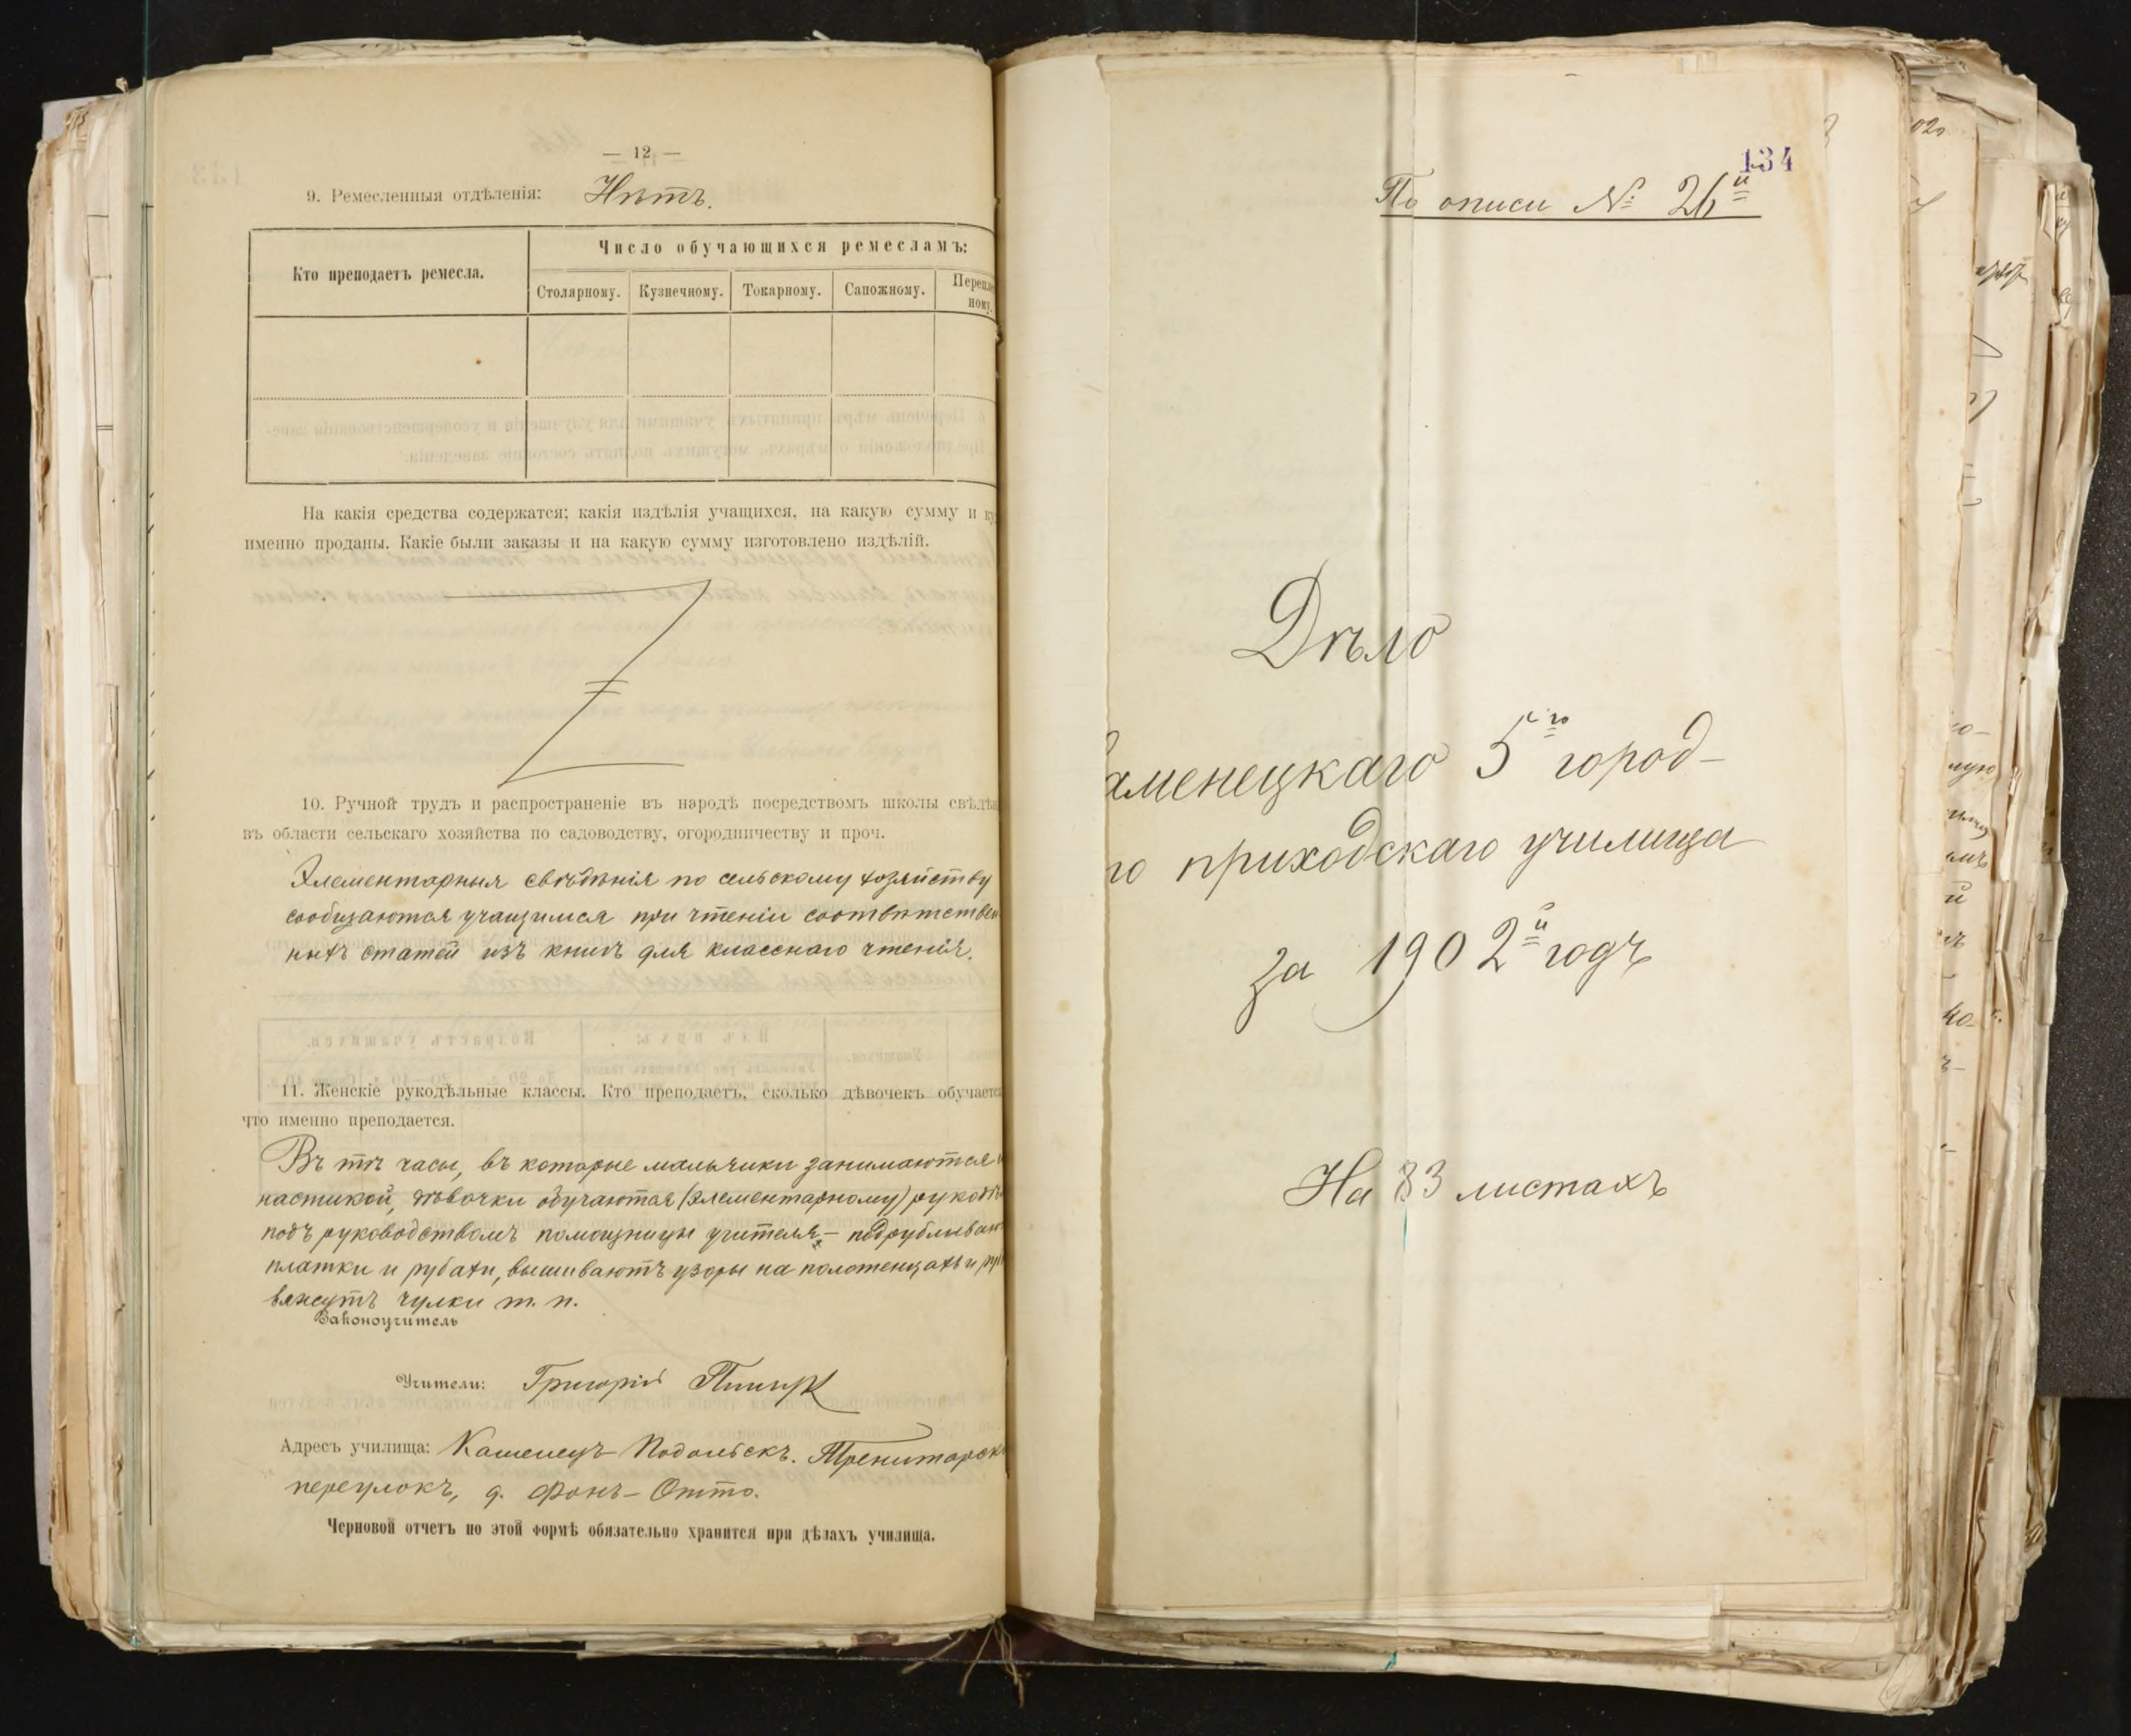 — 12 —
9. Ремесленныя отдѣленія: Нѣтъ.
Кто преподаетъ ремесла.
Число обучающихся ремесламъ:
Столярному. Кузнечному. Токарному. Сапожному. Перепле
ному.
На какія средства содержатся; какія издѣлія учащихся, на какую сумму и ку
именно проданы. Какіе были заказы и на какую сумму изготовлено издѣлій.
10. Ручной трудъ и распространеніе въ народѣ посредствомъ школы свѣдѣн
въ области сельскаго хозяйства по садоводству, огородничеству и проч.
Элементарныя свѣдѣнія по сельскому хозяйству
сообщаются учащимся при чтеніи соотвѣтствен
ныхъ статей изъ книгъ для класснаго чтенія.
11. Женскіе рукодѣльные классы. Кто преподаетъ, сколько дѣвочекъ обучаетс
что именно преподается.
Въ тѣ часы, въ которые мальчики занимаются
настикой, дѣвочки обучаются (элементарному) рукодѣ
подъ руководствомъ помощницы учителя, – подрубливаю
платки и рубахи, вышиваютъ узоры на полотенцахъ и ру
вяжутъ чулки т. п.
Законоучитель
Учители: Григорій
Адресъ училища: Каменецъ-Подольскъ. Тренитарск
переулокъ, д. Фонъ-Отто.
Черновой отчетъ по этой формѣ обязательно хранится при дѣлахъ училища.
134
По описи № 26й
Дѣло
аменецкаго 5го город-
го приходскаго училища
за 1902й годъ
На 83 листахъ